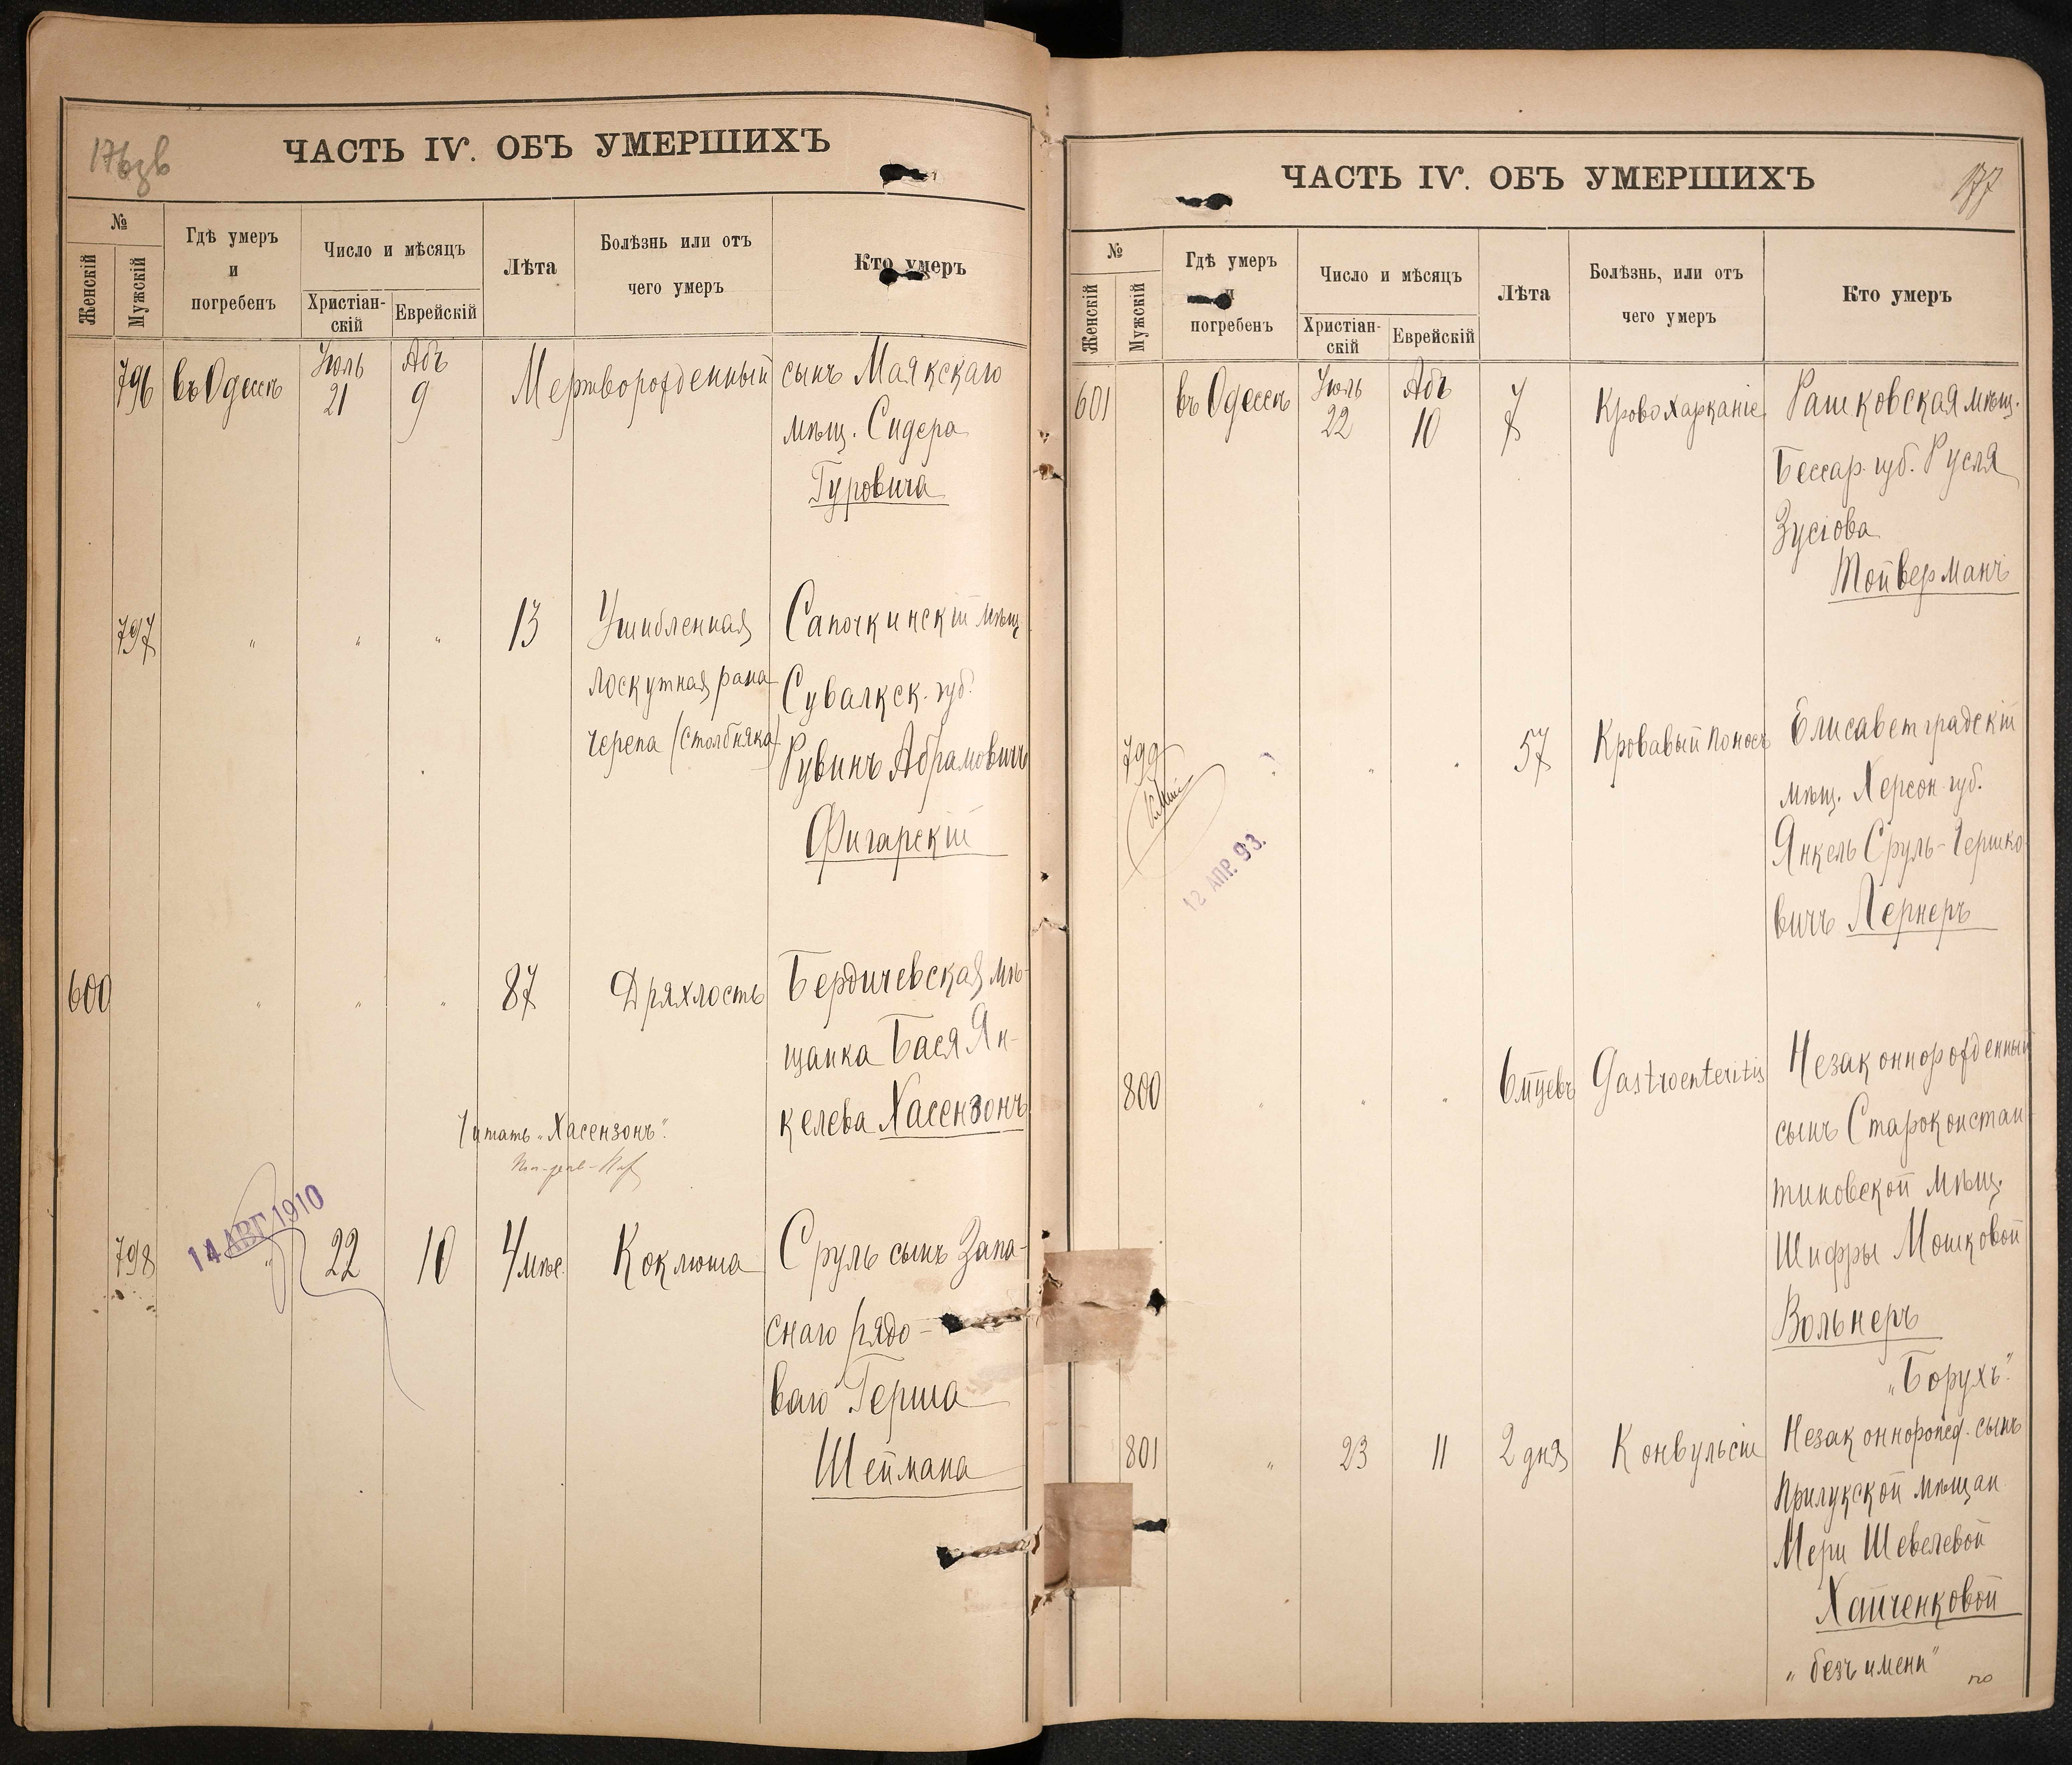 176зв
ЧАСТЬ IV. ОБЪ УМЕРШИХЪ
№
Женскій
Мужскій
Гдѣ умеръ
и
погребенъ
Число и мѣсяцъ
Христіан-
скій
Еврейскій
Лѣта
Болѣзнь или отъ
чего умеръ
Кто умеръ
796 въ Одессѣ Іюль 21 Абъ 9 Мертворожденный сынъ Маякскаго
мѣщ. Сидера
Гуровича
797 " " " 13 Ушибленная Сапочкинскій мѣщ.
лоскутная рана Сувалкск. губ.
черепа (столбняка) Рувинъ Абрамовичъ
Фигарскій
600 " " " 87 Дряхлость Бердичевская мѣ-
щанка Бася Ян-
келева Хасензонъ
Читать „Хасензонъ".
14 АВГ 1910
798 " 22 10 4 мѣс. Коклюша Сруль сынъ Запа-
снаго рядо-
ваго Герша
Шеймана
ЧАСТЬ IV. ОБЪ УМЕРШИХЪ
177
№
Женскій
Мужскій
Гдѣ умеръ
и
погребенъ
Число и мѣсяцъ
Христіан-
скій
Еврейскій
Лѣта
Болѣзнь, или отъ
чего умеръ
Кто умеръ
601 въ Одессѣ Іюль 22 Абъ 10 7 Кровохарканіе Рашковская мѣщ.
Бессар. губ. Русля
Зусіова
Тойверманъ
799 " " " 57 Кровавый поносъ Елисаветградскій
мѣщ. Херсон. губ.
Янкель Сруль-Гершко-
вичъ Лернеръ
12 АПР. 93.
800 " " " 6 мцевъ Gastroenteritis Незаконнорожденный
сынъ Староконстан-
тиновской мѣщ.
Шифры Мошковой
Вольнеръ
„Борухъ".
801 " 23 11 2 дня Конвульсіи Незаконнорожд. сынъ
Прилукской мѣщан
Мери Шевелевой
Хайченковой
„безъ имени"